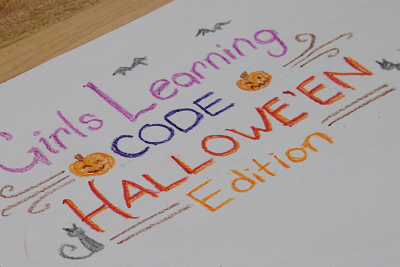 Girls Learning
CODE
HALLOWE'EN
Edition